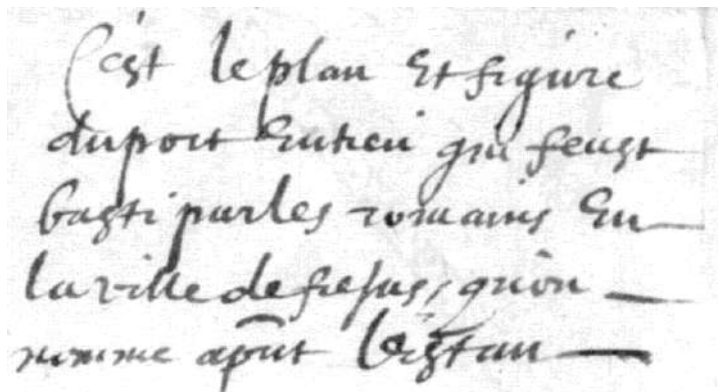 C'est le plan et figure
du port entien qui feust
basti par les romains en
la ville de frejus, qu'on
nomme apñt l'estan